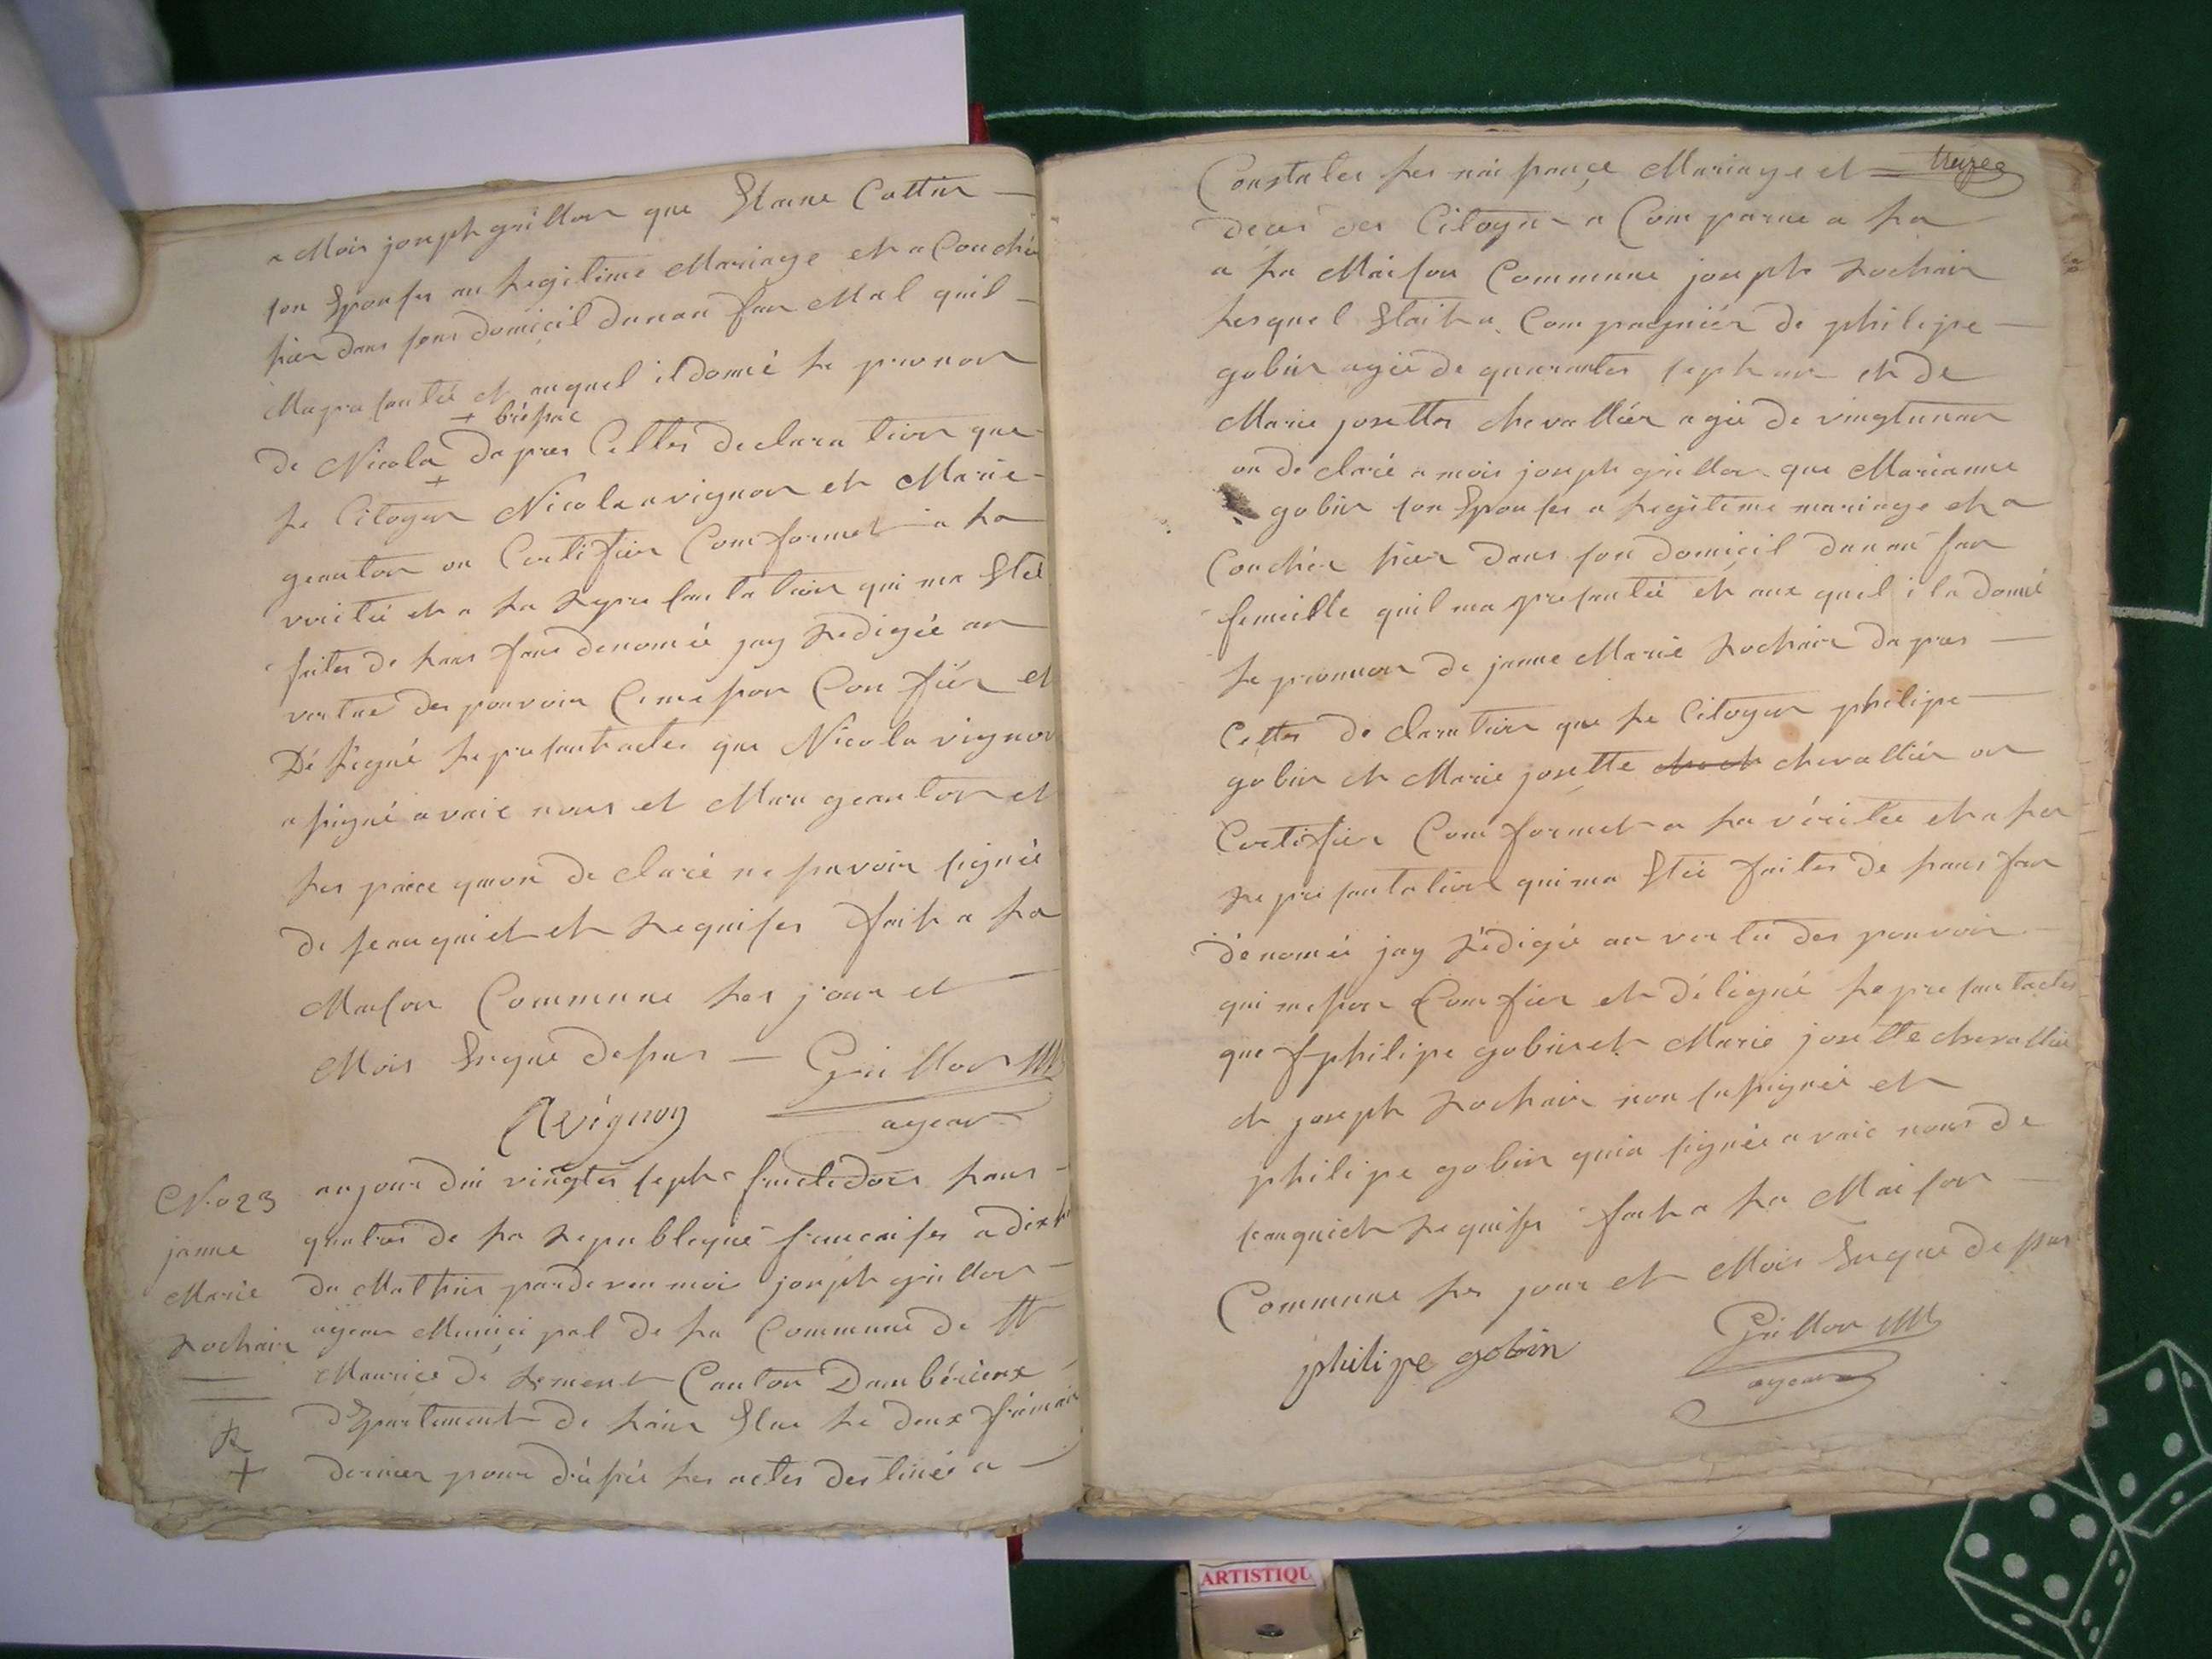 a Mois joseph grillon que Etienne Cottin
son Epouses an Legitime Mariage et a Couchée
hier dans sons domicil dunan fan Mal quil
Ma presantée et auquel il donné Le prenon
+ brispac
de Nicola + dapres Celles declaration que
Le Citoyen Nicola avignon et Marie
geanton on Certifier Comformet a La
veritée et a La Representation qui ma Etée
faites de Lans fans denomée jay Redigée an
vertue des pouvoir Ce me son Confiér et
Délégué Le presant actes que Nicola vignon
a signé avaic nous et Marie geanton et
Les paire quon declaré ne savoir signée
de se anquiet et Requises fait a La
Maison Commune Les jour et
Mois Enque desus — Grillon
Avignon agean
No 23 aujourdui vingtes sept fructidors Lans
janne quatres de La Republeque francaises a dix h
Marie du Mathin pardevan moi joseph grillon
Rochair agean Municipal de La Commune de St
Maurice de Rement Canton Dambérieux
R dEpartement de Lain Elue Le deux frimair
+ dernier pour drésée Les actes destinés a
treizes
Constates Les naissançe Mariage et
deces des Citoyen a Comparue a La
a La Maison Commune joseph Rochair
Lesquel Etait a Compagniér de philipe
gobin agée de quarantes sept an et de
Marie josettes chevalliér agée de vingtunan
on declaré a mois joseph grillon que Marianne
gobin son Epouses a Legiteme mariage et a
Couchée hier dans son domicil dunan fan
femeille quil ma presantée et aux quel il a donné
Le prennon de janne Marie Rochair dapres
Celles declaration que Le Citoyen philipe
gobin et Marie josette chevalliér on
Certifier Comformet a La véritée et a La
Representation qui ma Etée faites de Lans fan
dénomée jay Rédigée an vertu des pouvoir
qui me son Comfier et délégué Le presant actes
que philipe gobin et Marie josette chevallier
et joseph Rochair non su signée et
philipe gobin quia signée avaic nous de
se anquiet Requises fait a La Maison
Commune Les jour et Mois Enque desus
philipe gobin Grillon
agean
ARTISTIQU